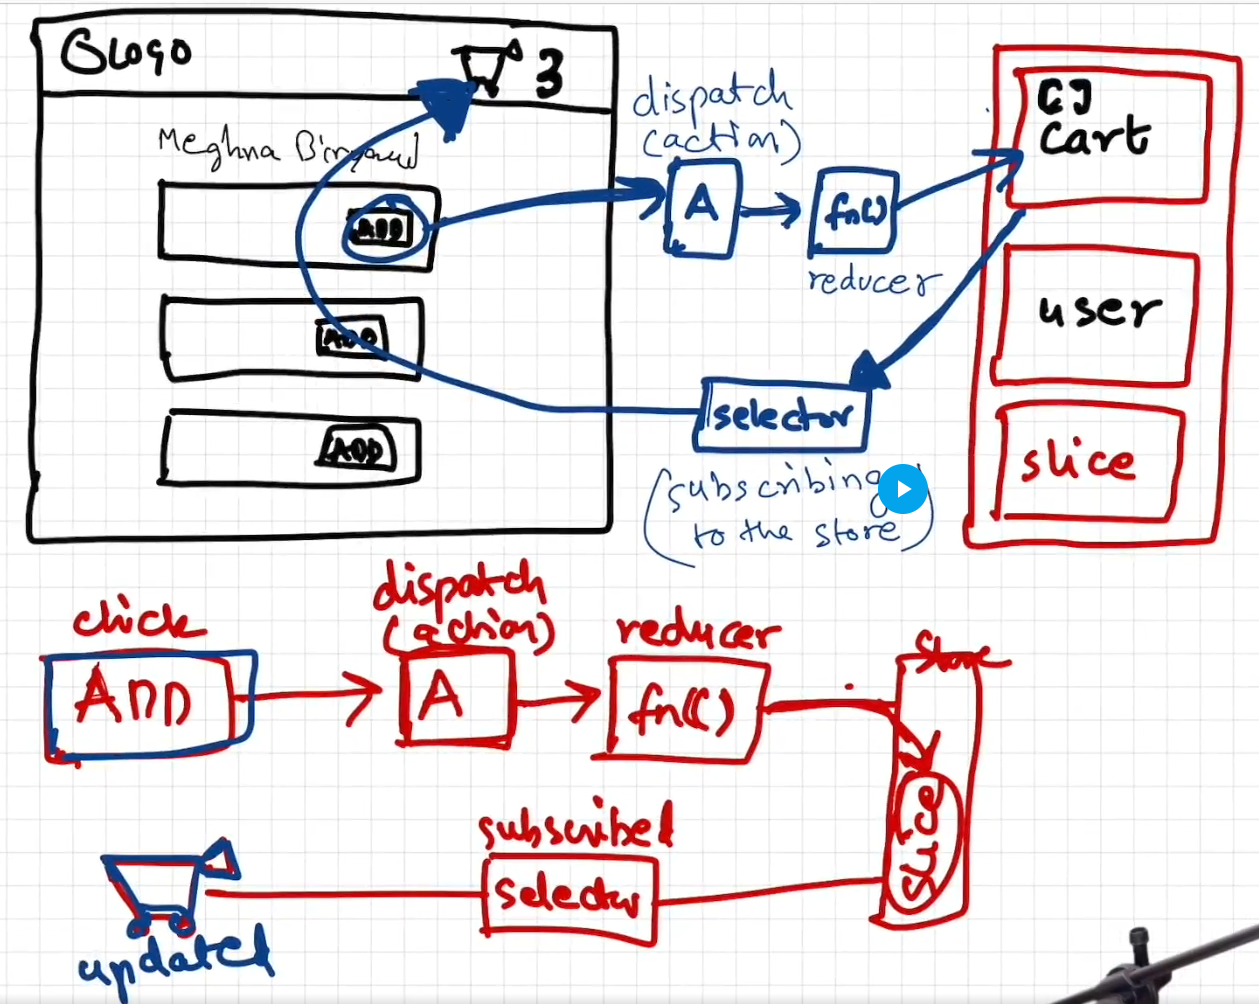 LOGO
3
Meghna Biryani
ADD
ADD
ADD
dispatch
(action)
A
fn()
reducer
[]
cart
user
slice
selector
(subscribing
to the store)
click
ADD
dispatch
(action)
A
reducer
fn()
Store
slice
subscribed
selector
updated